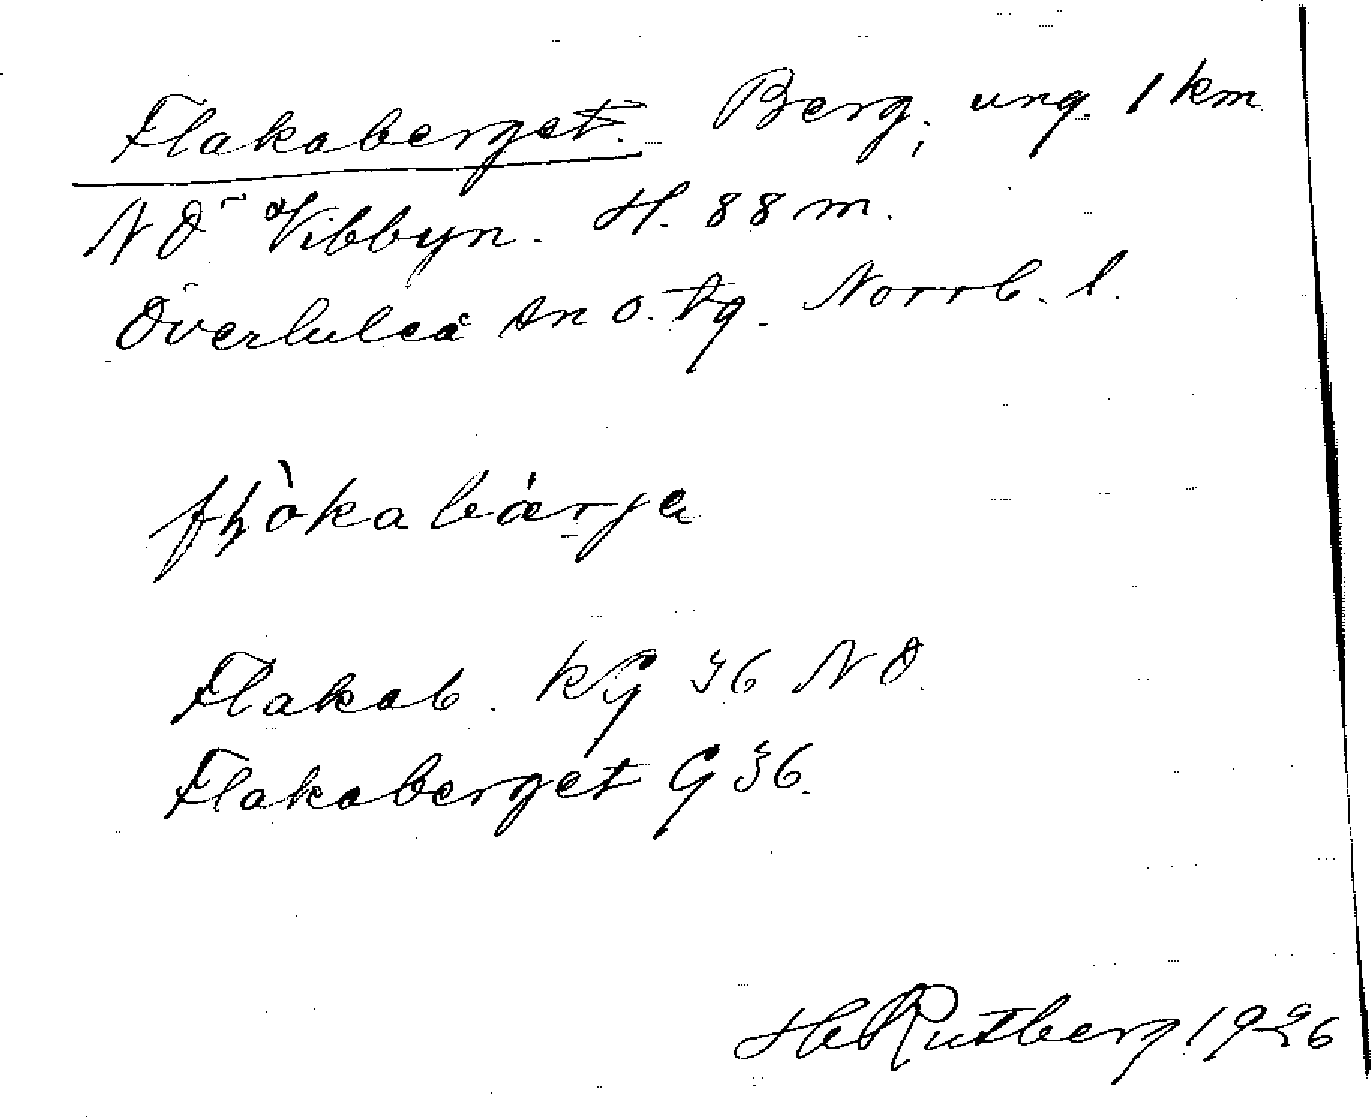 Flakaberget. Berg, ung. 1 km
NO Vibbyn. H. 88 m.
Överluleå sn o. tg. Norrb. l.
Flakab. kG 36 NO
Flakaberget G 36.
H Rutberg 1926